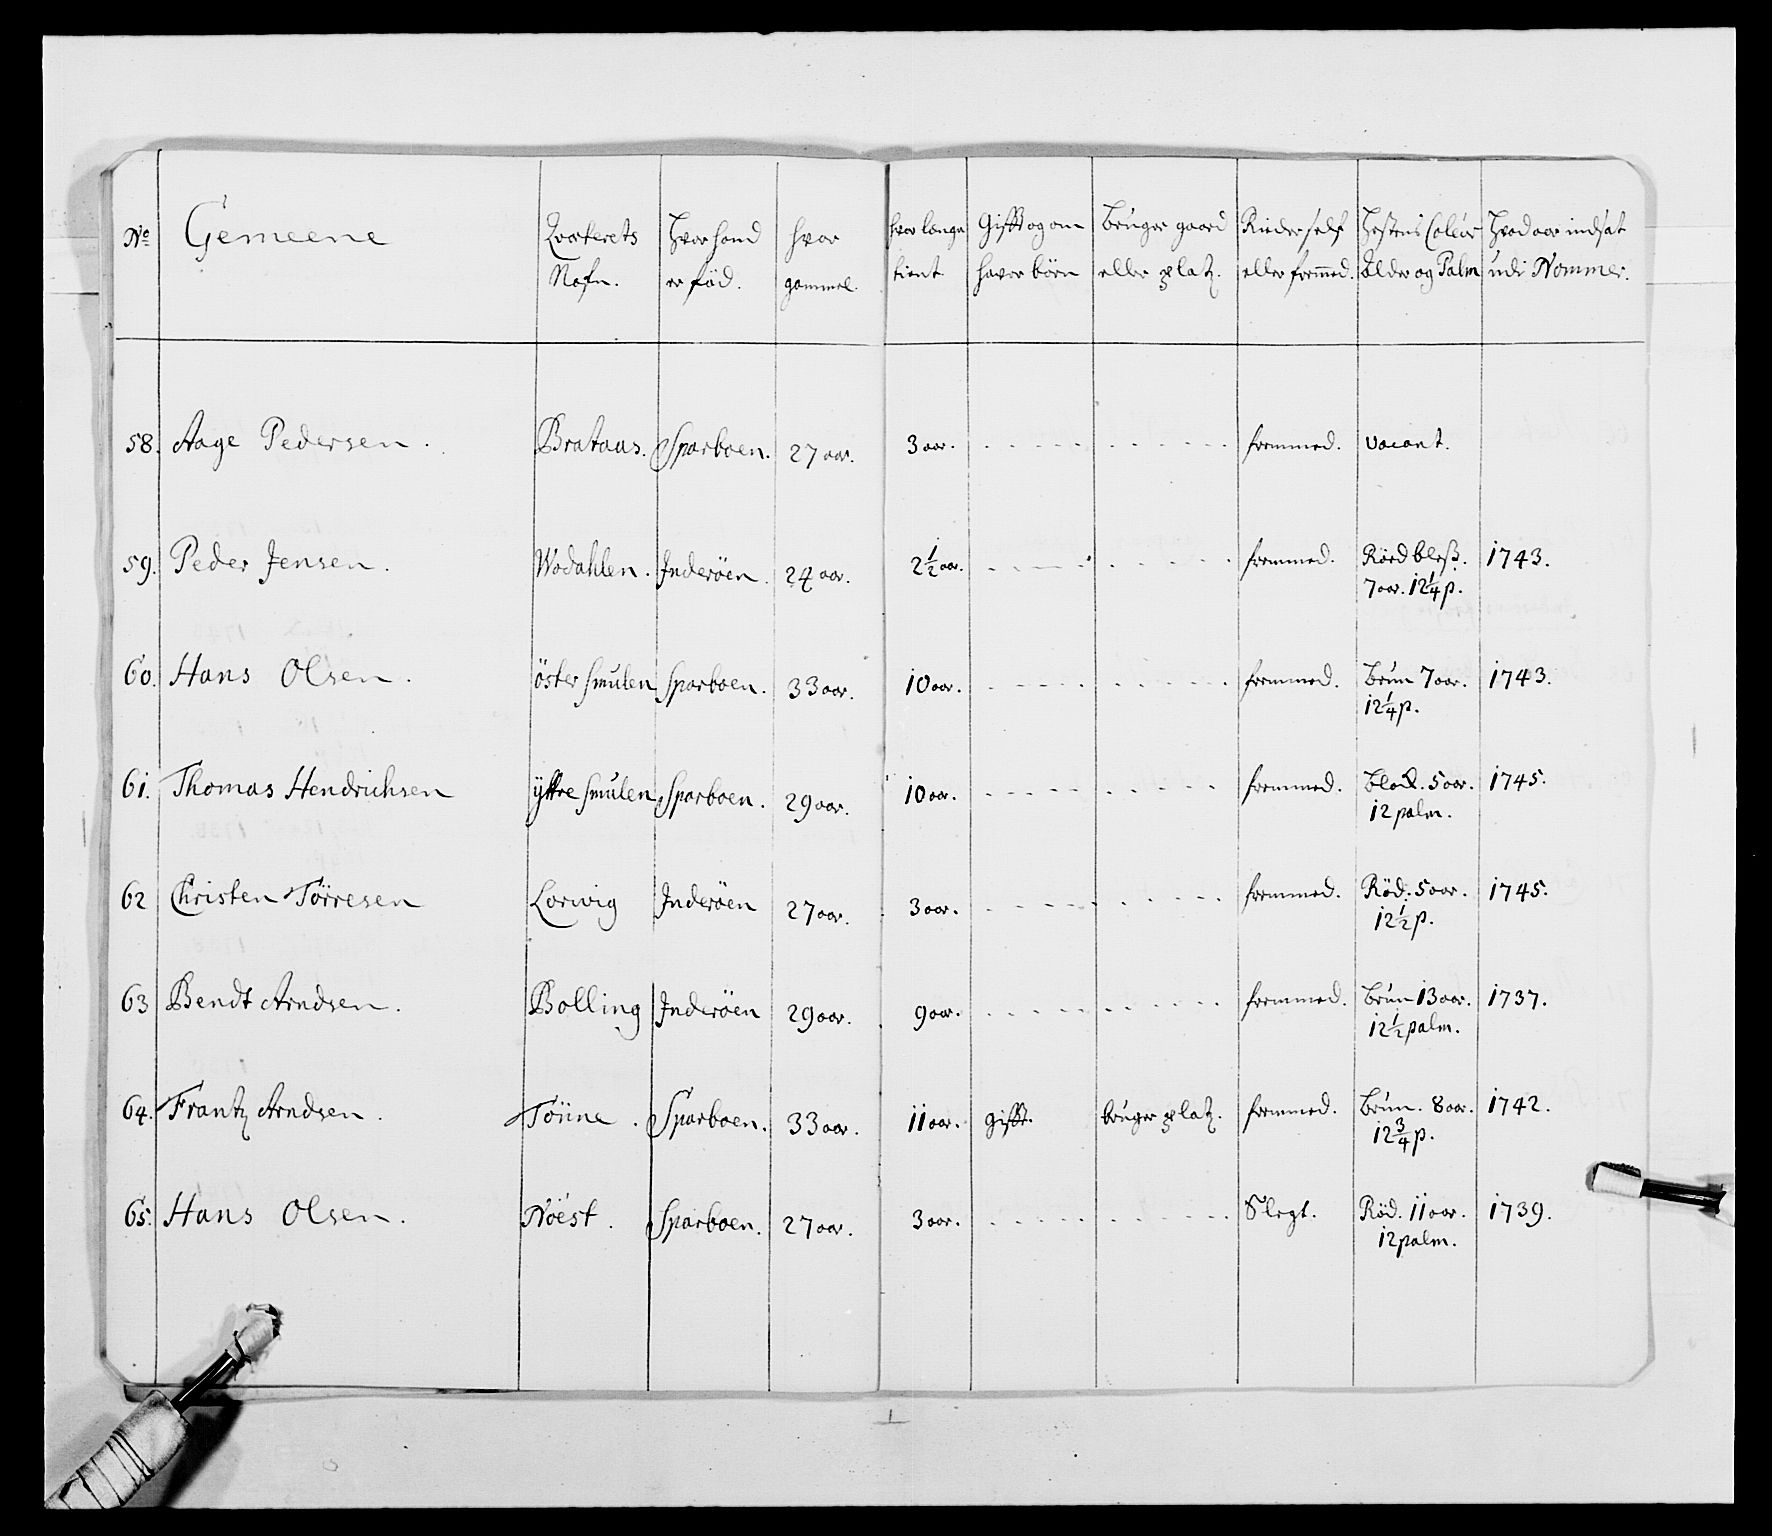 No Gemeene Qvarterets Hvor hand hvor hvor længe Gifft og om bruger gaard Rider self Hestens Coleur Hvad aar indsat
Nafn. er fød. gammel. tient haver börn eller platz. eller fremmed. Alder og Palm udi Nommer.
58. Aage Pedersen. Brataas. Sparboen. 27 aar. 3 aar. fremmed. vacant.
59. Peder Jensen. Wodahlen. Inderöen. 24 aar. 2 1/2 aar. fremmed. Röed bless. 1743.
7 aar. 12 1/4 p.
60. Hans Olsen. öster smulen Sparboen. 33 aar. 10 aar. fremmed. Brun 7 aar. 1743.
12 1/4 p.
61. Thomas Hendrichsen ÿttre smulen Sparboen. 29 aar. 10 aar. fremmed. black. 5 aar. 1745.
12 palm.
62 Christen Törresen Lorvig Inderöen 27 aar. 3 aar. fremmed. Röd. 5 aar. 1745.
12 1/2 p.
63 Bendt Arndsen. Bolling Inderöen 29 aar. 9 aar. fremmed. Brun 13 aar. 1737.
12 1/2 palm.
64. Frantz Arndsen. Tönne. Sparboen. 33 aar. 11 aar. gifft. bruger platz. fremmed. Brun. 8 aar. 1742.
12 3/4 p.
65. Hans Olsen. Nöest. Sparboen. 27 aar. 3 aar. Slegt. Röd. 11 aar. 1739.
12 palm.